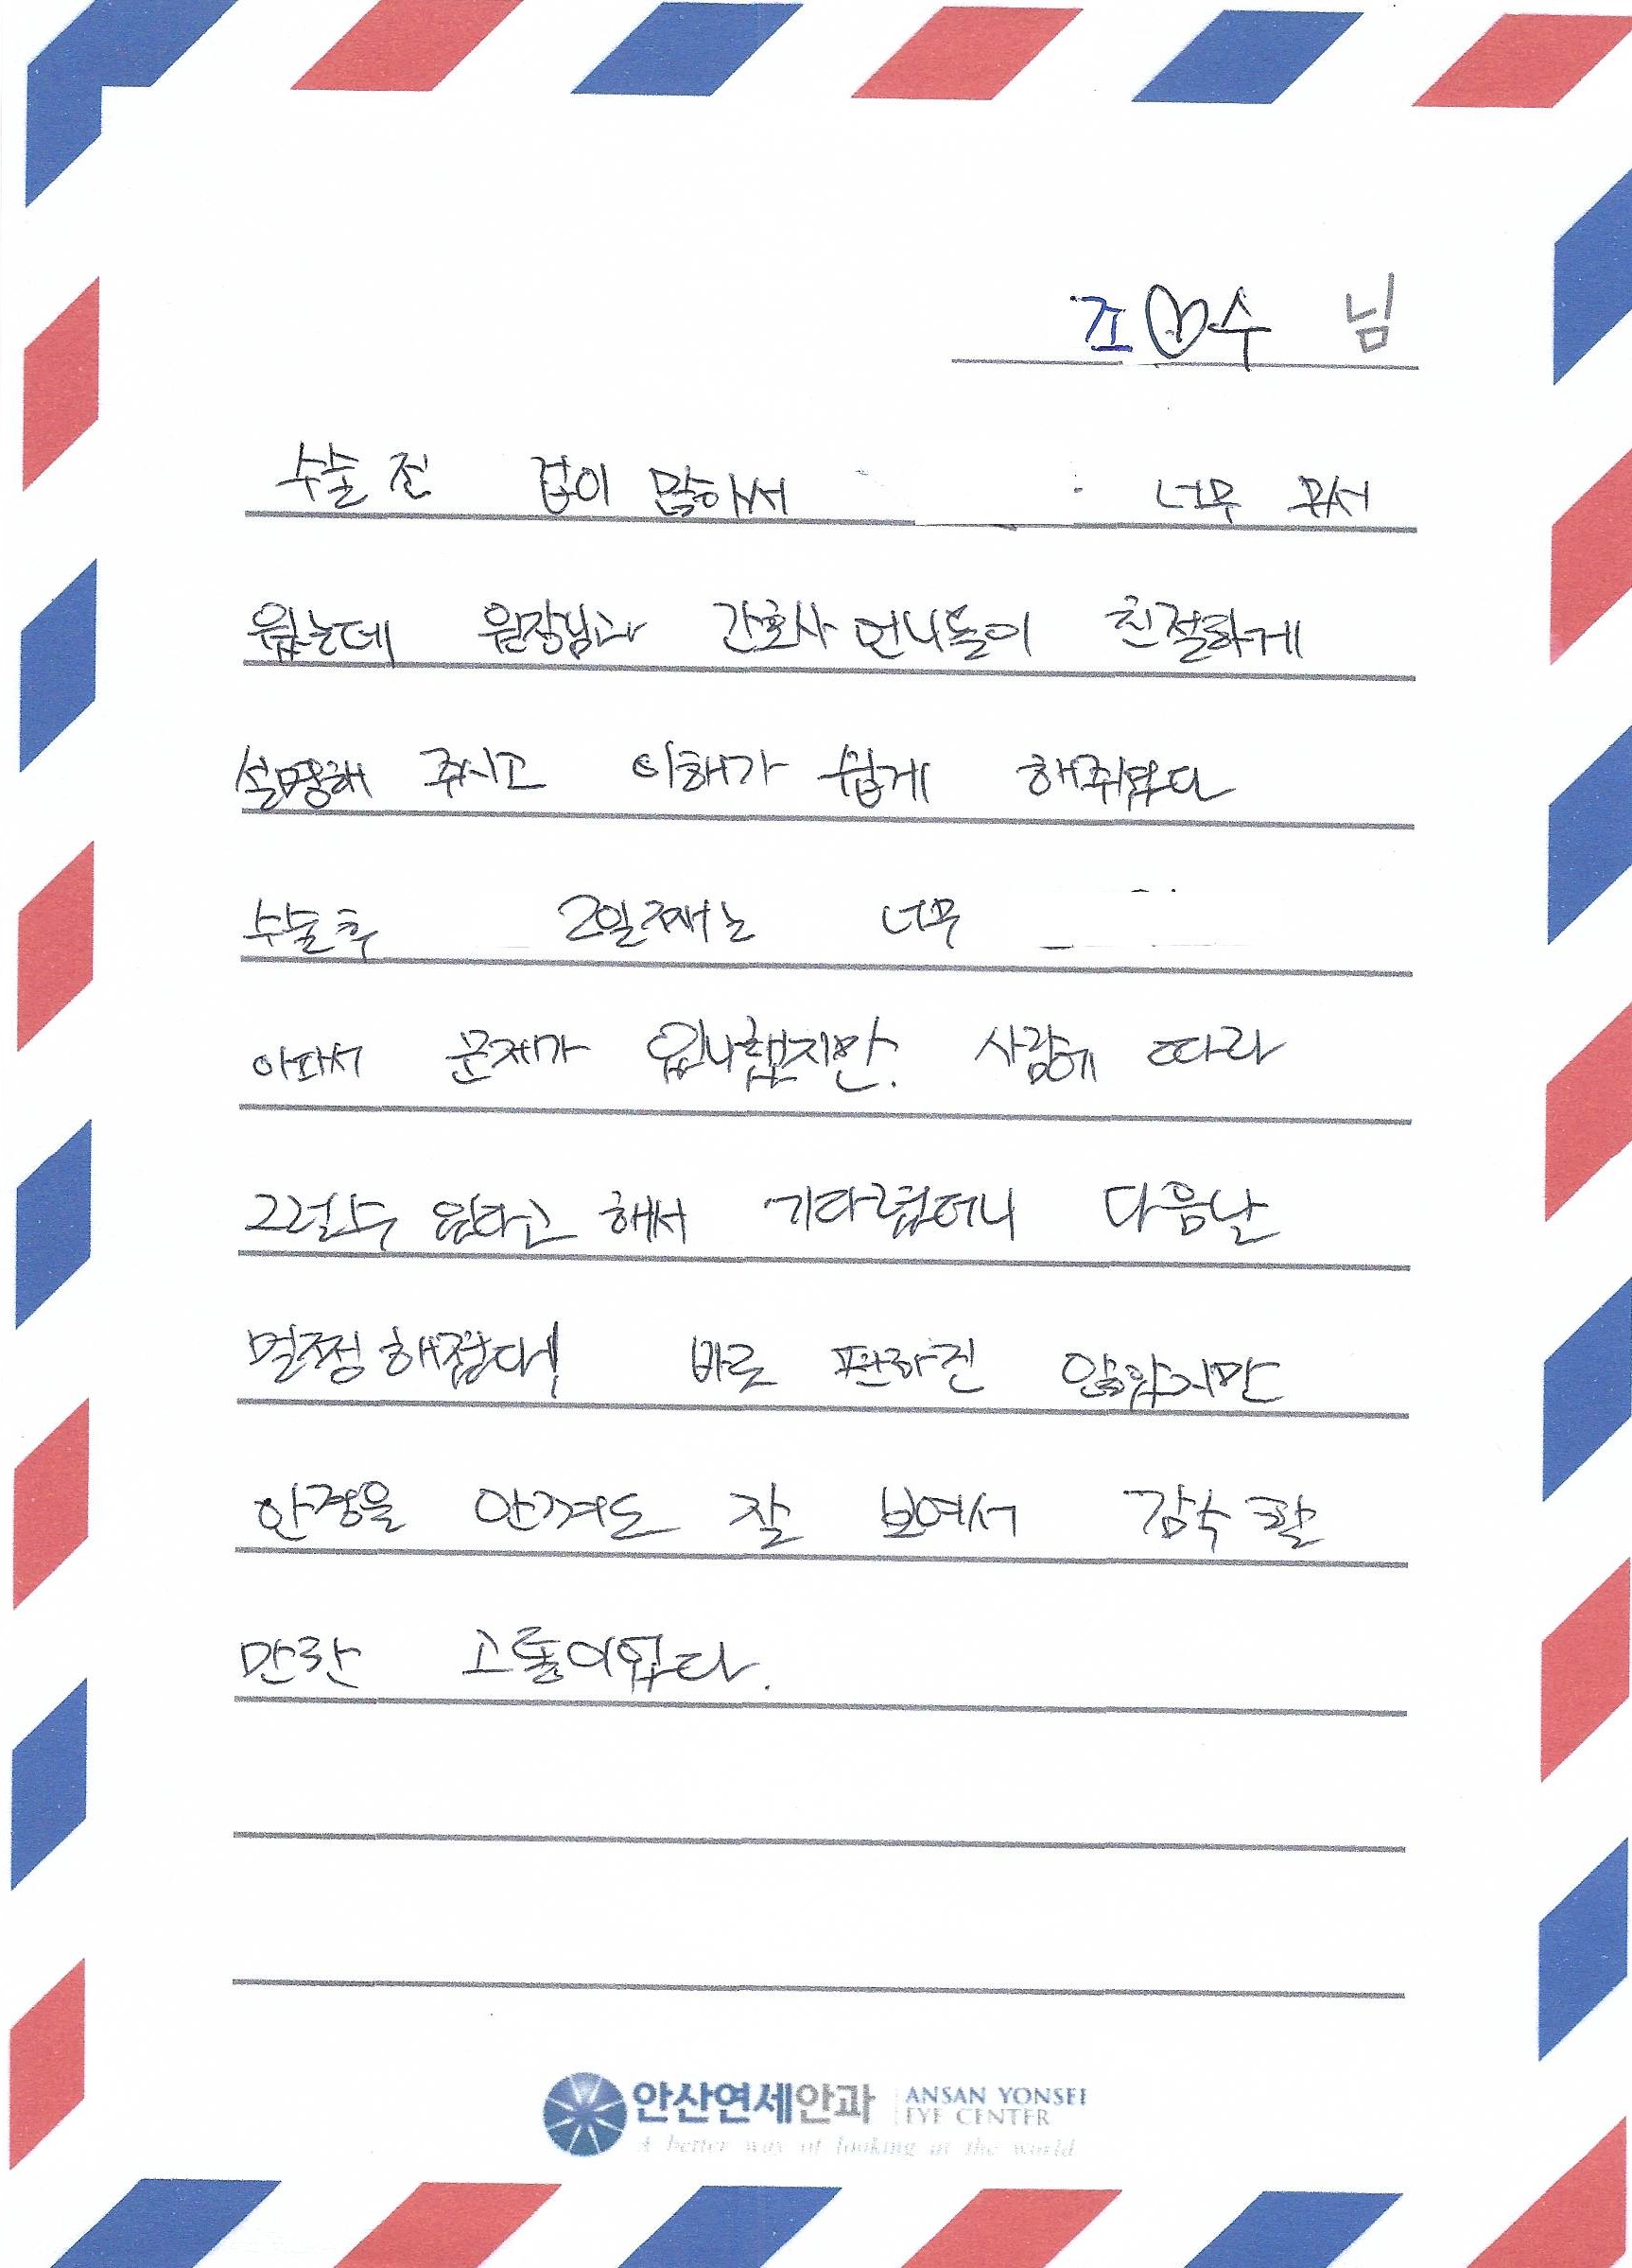 조♡수 님
수술 전 겁이 많아서 너무 무서
웠는데 원장님과 간호사 언니들이 친절하게
설명해 주시고 이해가 쉽게 해주셨다
수술후 2일째는 너무
아파서 문제가 있나했지만. 사람에 따라
그럴수 있다고 해서 기다렸더니 다음날
멀쩡해졌다! 바로 편하진 않았지만
안경을 안껴도 잘 보여서 감수할
만한 고통이였다.
안산연세안과 ANSAN YONSEI
EYE CENTER
A better way of looking at the world